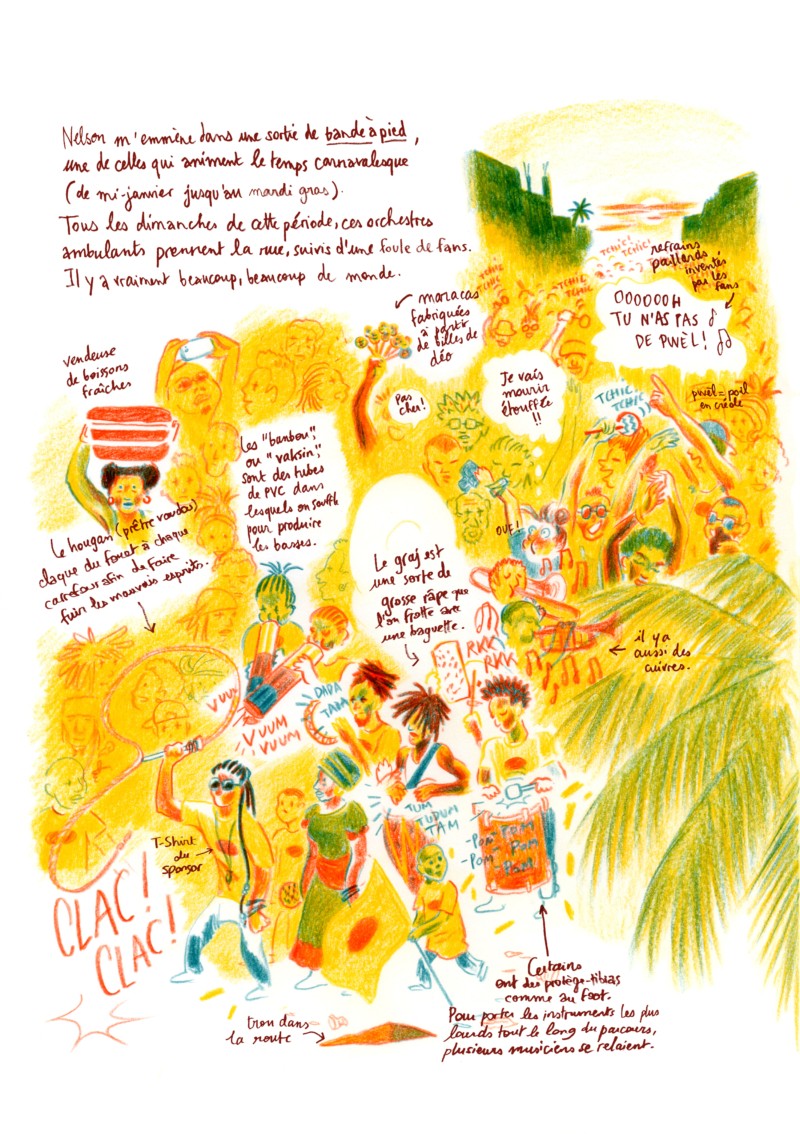 Nelson m'emmène dans une sortie de bande à pied,
une de celles qui animent le temps carnavalesque
(de mi-janvier jusqu'au mardi gras).
Tous les dimanches de cette période, ces orchestres
ambulants prennent la rue, suivis d'une foule de fans.
Il y a vraiment beaucoup, beaucoup de monde.
TCHIC!
TCHIC!
refrains
paillards
inventés
par les
fans
OOOOOOH
TU N'AS PAS
DE PWÈL!
pwèl = poil
en créole
TCHIC
TCHIC
TCHIC
TCHIC
maracas
fabriquées
à partir
de billes de
déo
vendeuse
de boissons
fraîches
Pas
cher!
Je vais
mourir
étouffée
!!
TCHIC.
TCHIC.
Les "banbou",
ou "vaksin",
sont des tubes
de PVC dans
lesquels on souffle
pour produire
les basses.
Le hougan (prêtre vaudou)
claque du fouet à chaque
carrefour afin de faire
fuir les mauvais esprits.
OUF!
Le graj est
une sorte de
grosse râpe que
l'on frotte avec
une baguette.
RKK
RKK
il y a
aussi des
cuivres.
VUUM
VUUM
VUUM
DADA
TAM
TUM
TUDUM
TAM
-POM- POM
-POM- POM
POM
T-Shirt
du
sponsor
CLAC!
CLAC!
Certains
ont des protège-tibias
comme au foot.
Pour porter les instruments les plus
lourds tout le long du parcours,
plusieurs musiciens se relaient.
trou dans
la route